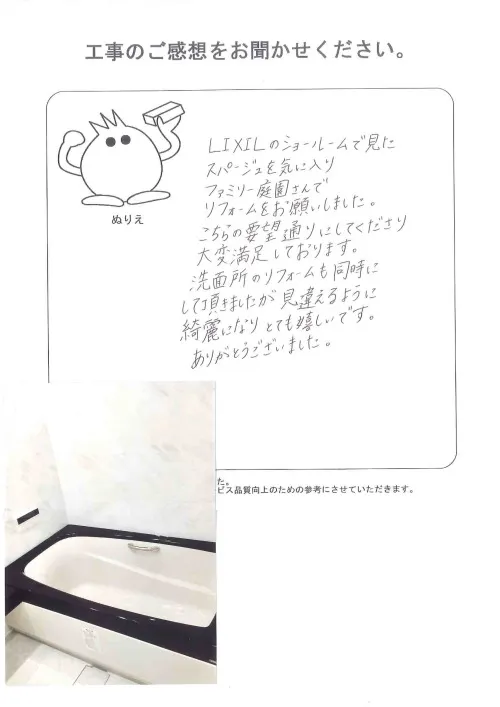 工事のご感想をお聞かせください。
ぬりえ
LIXILのショールームで見た
スパージュを気に入り
ファミリー庭園さんで
リフォームをお願いしました。
こちらの要望通りにしてくださり
大変満足しております。
洗面所のリフォームも同時に
して頂きましたが見違えるように
綺麗になりとても嬉しいです。
ありがとうございました。
た。
ビス品質向上のための参考にさせていただきます。